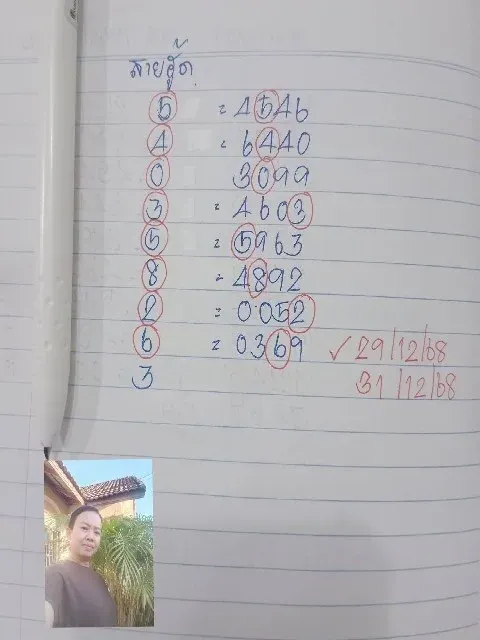 สายฮู้ด
5 = 4546
4 = 6440
0 3099
3 = 4603
5 = 5963
8 = 4892
2 = 0052
6 = 0369 ✓ 29/12/68
3 31/12/68